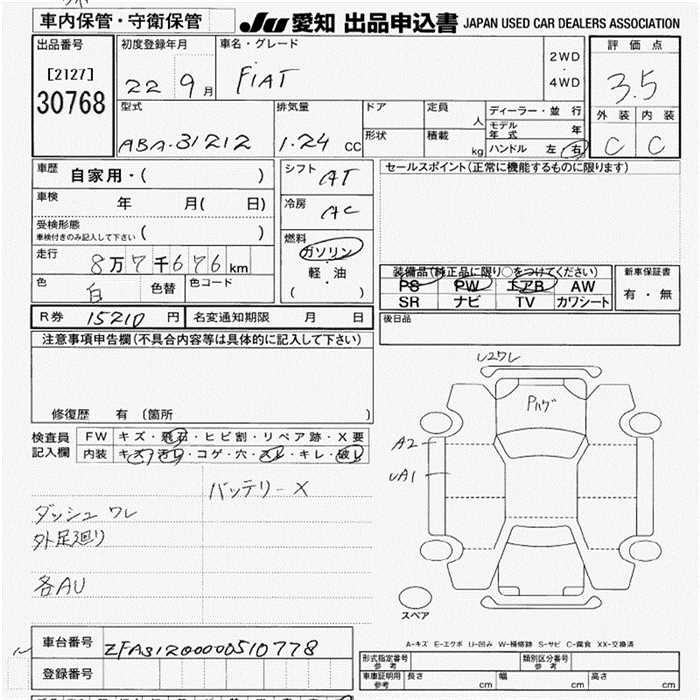 車内保管・守衛保管
JU 愛知 出品申込書 JAPAN USED CAR DEALERS ASSOCIATION
出品番号
[2127]
30768
初度登録年月
22 9月
車名・グレード
FIAT
2WD
・
4WD
評価点
3.5
外装 内装
C C
型式
ABA-31212
排気量
1.24 CC
ドア
形状
定員
人
積載
kg
ディーラー・並行
モデル年式 年
ハンドル 左 右
車歴
自家用・( )
車検
年 月( 日)
受検形態
車検付きのみ記入して下さい ( )
走行
8万7千676km
色
白
色替
色コード
シフト AT
冷房 AC
燃料
ガソリン
・
軽・油
( )
セールスポイント(正常に機能するものに限ります)
装備品(純正品に限り○をつけてください)
PS PW エアB AW
SR ナビ TV カワシート
新車保証書
有・無
後日品
R券 15210 円 名変通知期限 月 日
注意事項申告欄(不具合内容等は具体的に記入して下さい)
修復歴 有(箇所 )
検査員
記入欄
FW キズ・飛石・ヒビ割・リペア跡・X要
内装 キズ・汚れ・コゲ・穴・スレ・キレ・破レ
バッテリーX
ダッシュワレ
外足廻り
各AU
U2ワレ
Pハゲ
A2
UA1
スペア
A-キズ E-エクボ U-凹み W-補修跡 S-サビ C-腐食 XX-交換済
車台番号 ZFA31200000510778
登録番号
形式指定番号
参考
類別区分番号
参考
車庫証明用
参考
長さ cm 幅 cm 高さ cm